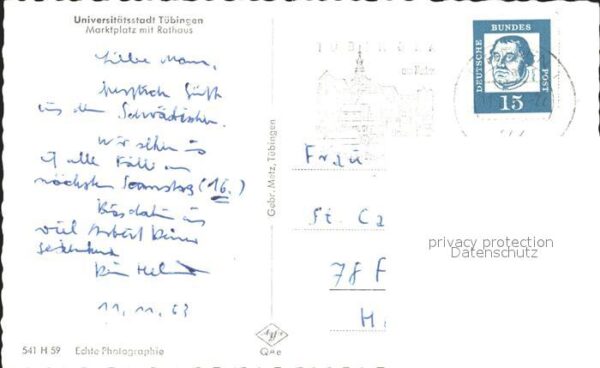 Universitätsstadt Tübingen
Marktplatz mit Rathaus
Liebe Mama,
herzlich Grüße
aus dem Schwäbischen.
Wir sehen uns
auf alle Fälle am
nächsten Samstag (16.)
Bis dahin
viel Arbeit
Dein
11.11.63
541 H 59 Echte Photographie
Gebr. Metz, Tübingen
Agfa
TÜBINGEN
am Neckar
DEUTSCHE BUNDES POST
15
Frau
St. Ca
78 F
H
privacy protection
Datenschutz